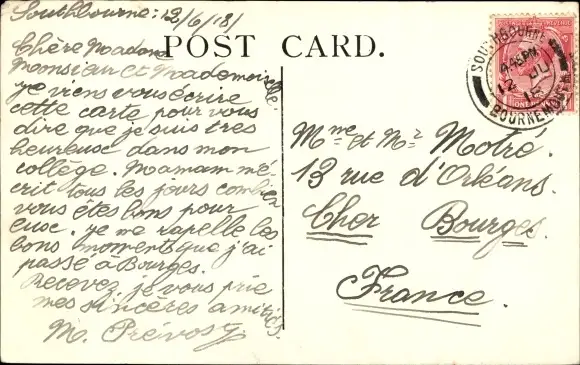 Southbourne: 12/6/18/
POST CARD.
Chère Madame
Monsieur et Mademoiselle
je viens vous écrire
cette carte pour vous
dire que je suis très
heureuse dans mon
collège. Mamam mé-
crit tous les jours combien
vous êtes bons pour
eusc. je me rapelle les
bons moments que j'ai
passé à Bourges.
Recevez je vous prie
mes sincères amitiés.
M. Prévost
Mme et Mr Motré.
13 rue d'Orléans.
Cher Bourges.
France.
SOUTHBOURNE
12 JU
BOURNEMOUTH